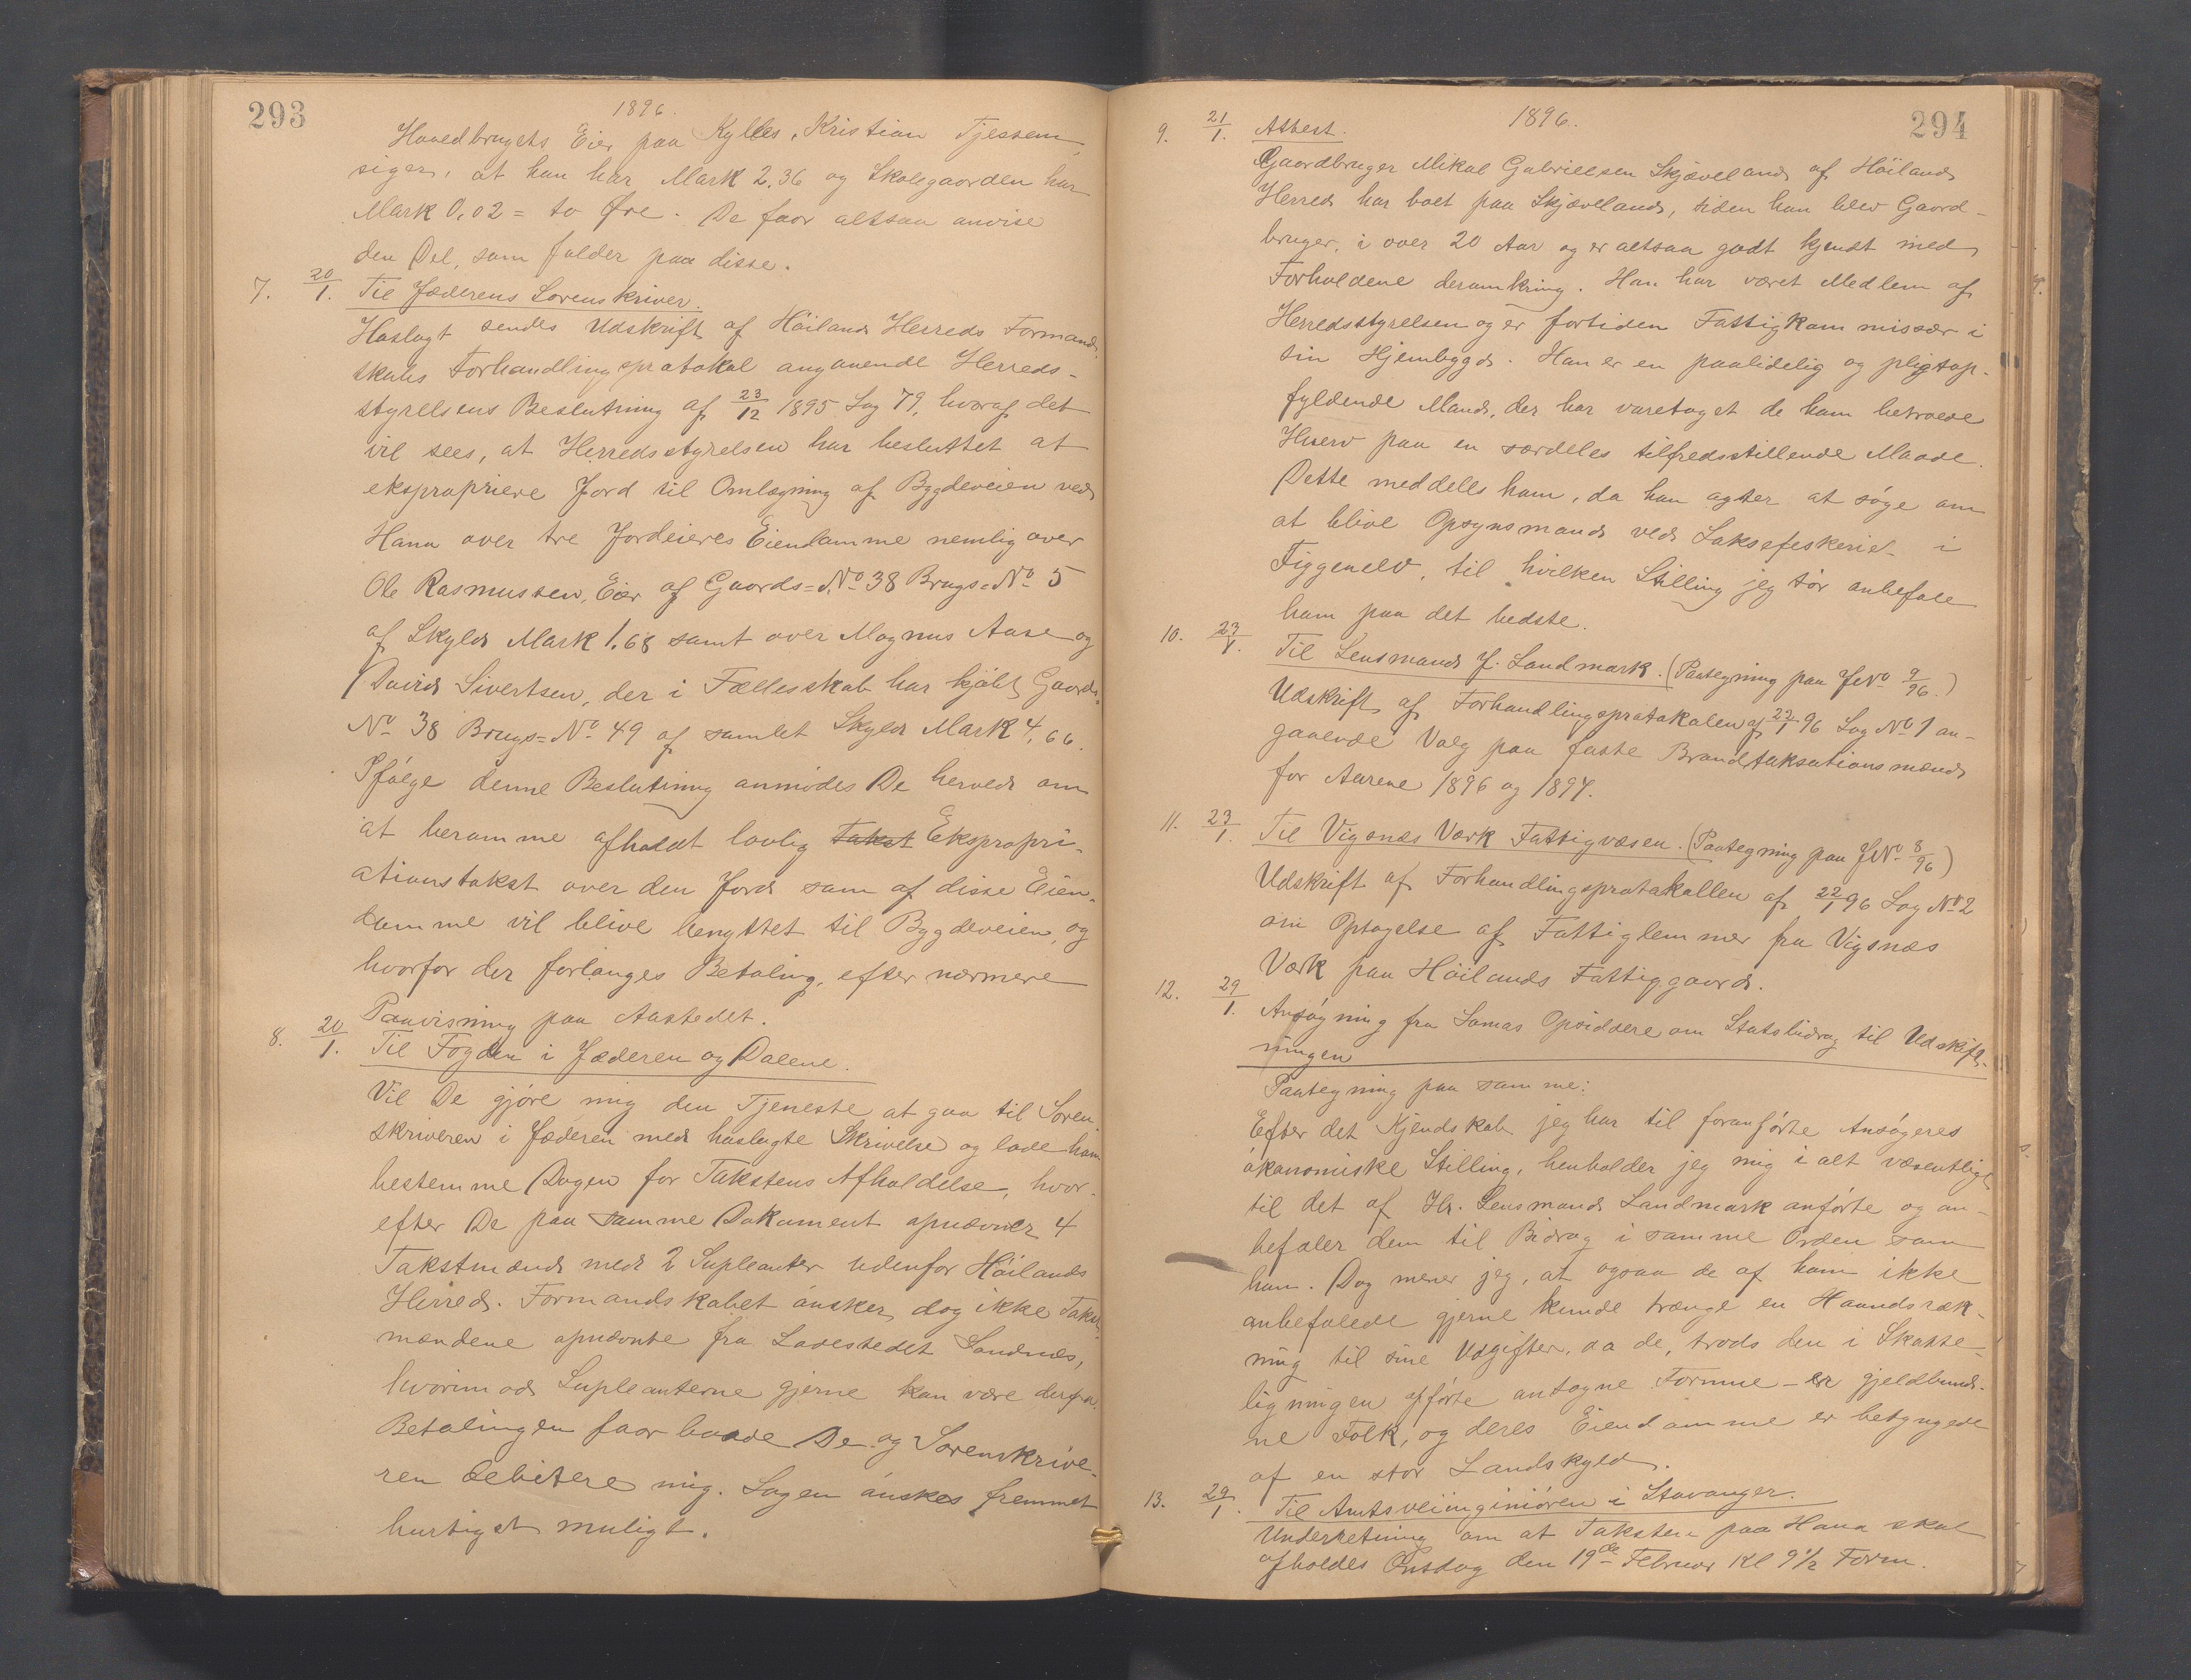 293
1896.
Hovedbrugets Eier paa Kylles, Kristian Tjessem,
siger, at han har Mark 2.36 og Skolegaarden har
Mark 0,02 = to Øre. De faar altsaa anvise
den Del, som falder paa disse.
7. 20/1. Til Jæderens Sorenskriver.
Hoslagt sendes Udskrift af Höilands Herreds Formand-
skabs Forhandlingsprotokol angaaende Herreds-
styrelsens Beslutning af 23/12 1895 Sag 79, hvoraf det
vil sees, at Herredsstyrelsen har besluttet at
ekspropriere Jord til Omlægning af Bygdeveien ved
Hana over tre Jordeieres Eiendomme nemlig over
Ole Rasmussen, Eier af Gaards=No 38 Brugs=No 5
af Skyld Mark 1.68 samt over Magnus Aase og
David Sivertsen, der i Fællesskab har kjöbt Gaards-
No 38 Brugs=No 49 af samlet Skyld Mark 4,66.
Ifölge denne Beslutning anmodes De herved om
at beramme afholdt lovlig Takst Ekspropri-
ationstakst over den Jord som af disse Eien-
domme vil blive benyttet til Bygdeveien, og
hvorfor der forlanges Betaling, efter nærmere
Paavisning paa Aastedet.
8. 20/1. Til Fogden i Jæderen og Dalene.
Vil De gjöre mig den Tjeneste at gaa til Soren-
skriveren i Jæderen med hoslagte Skrivelse og lade ham
bestemme Dagen for Takstens Afholdelse, hvor-
efter De paa samme Dokument opnævner 4
Takstmænd med 2 Supleanter udenfor Höilands
Herred. Formandskabet önsker dog ikke Takst-
mændene opnævnte fra Ladestedet Sandnæs,
hvorimod Supleanterne gjerne kan være derfra.
Betalingen faar baade De og Sorenskrive-
ren debitere mig. Sagen önskes fremmet
hurtigst muligt.
294
1896.
9. 21/1. Attest.
Gaardbruger Mikal Gabrielsen Skjæveland af Höiland
Herred har boet paa Skjæveland, siden han blev Gaard-
bruger, i over 20 Aar og er altsaa godt kjendt med
Forholdene deromkring. Han har været Medlem af
Herredsstyrelsen og er fortiden Fattigkommissær i
sin Hjembygd. Han er en paalidelig og pligtop-
fyldende Mand, der har varetaget de ham betroede
Hverv paa en særdeles tilfredsstillende Maade.
Dette meddeles ham, da han agter at söge om
at blive Opsynsmand ved Laksefiskeriet i
Figgenelv, til hvilken Stilling jeg tör anbefale
ham paa det bedste.
10. 23/1. Til Lensmand J. Landmark. (Paategning paa JNo 9/96.)
Udskrift af Forhandlingsprotokolen af 22/1 96 Sag No 1 an-
gaaende Valg paa faste Brandtaksationsmænd
for Aarene 1896 og 1897.
11. 23/1. Til Vigsnæs Værk Fattigvæsen. (Paategning paa JNo 8/96)
Udskrift af Forhandlingsprotokollen af 22/1 96 Sag No 2
om Optagelse af Fattiglemmer fra Vigsnæs
Værk paa Höilands Fattiggaard.
12. 29/1. Ansögning fra Somas Opsiddere om Statsbidrag til Udskift-
ningen
Paategning paa samme:
Efter det Kjendskab jeg har til foranförte Ansögeres
ökonomiske Stilling, henholder jeg mig i alt væsentligt
til det af Hr. Lensmand Landmark anförte og an-
befaler dem til Bidrag i samme Orden som
han. Dog mener jeg, at ogsaa de af ham ikke
anbefalede gjerne kunde trænge en Haandsræk-
ning til sine Udgifter, da de, trods den i Skatte-
ligningen opförte antagne Formue – er gjeldbund-
ne Folk, og deres Eiendomme er betyngede
af en stor Landskyld.
13. 29/1. Til Amtsveiinginiören i Stavanger.
Underretning om at Taksten paa Hana skal
afholdes Onsdag den 19de Februar Kl 9 1/2 Form.